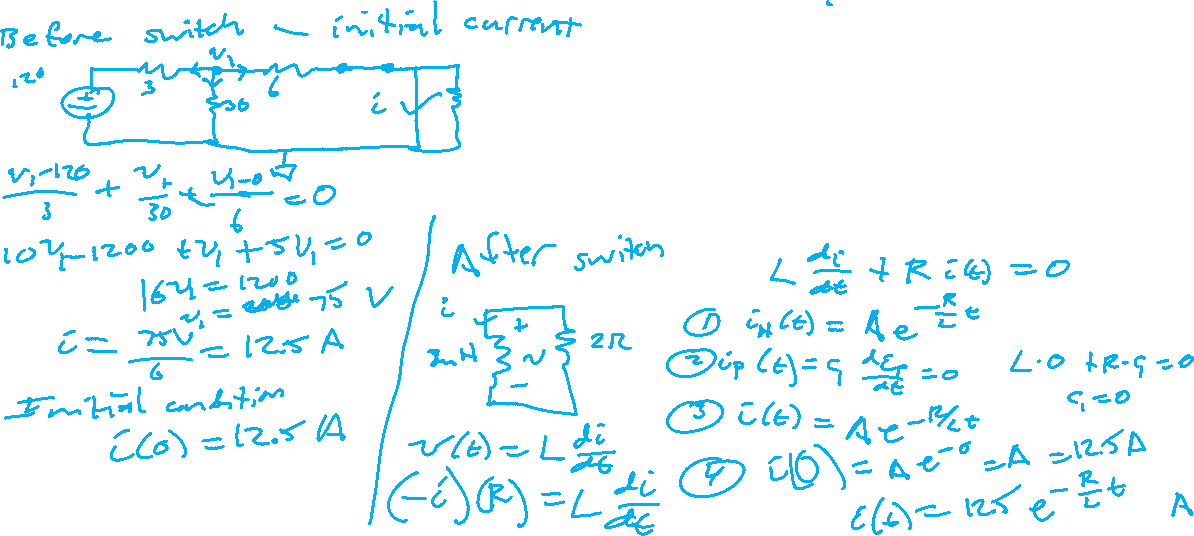 Before switch – initial current
120
v₁
3
6
30
i
(v₁-120)/3 + v₁/30 + (v₁-0)/6 = 0
10v₁-1200 + v₁ + 5v₁ = 0
16v₁ = 1200
v₁ = 75 V
i = 75V/6 = 12.5 A
Initial condition
i(0) = 12.5 A
After switch
i
+
2mH
v
2Ω
-
v(t) = L di/dt
(-i)(R) = L di/dt
L di/dt + R i(t) = 0
① i_H(t) = A e^(-R/L t)
② i_p(t) = c₁ di_p/dt = 0 L·0 + R·c₁ = 0
c₁ = 0
③ i(t) = A e^(-R/L t)
④ i(0) = A e^(-0) = A = 12.5 A
i(t) = 12.5 e^(-R/L t) A